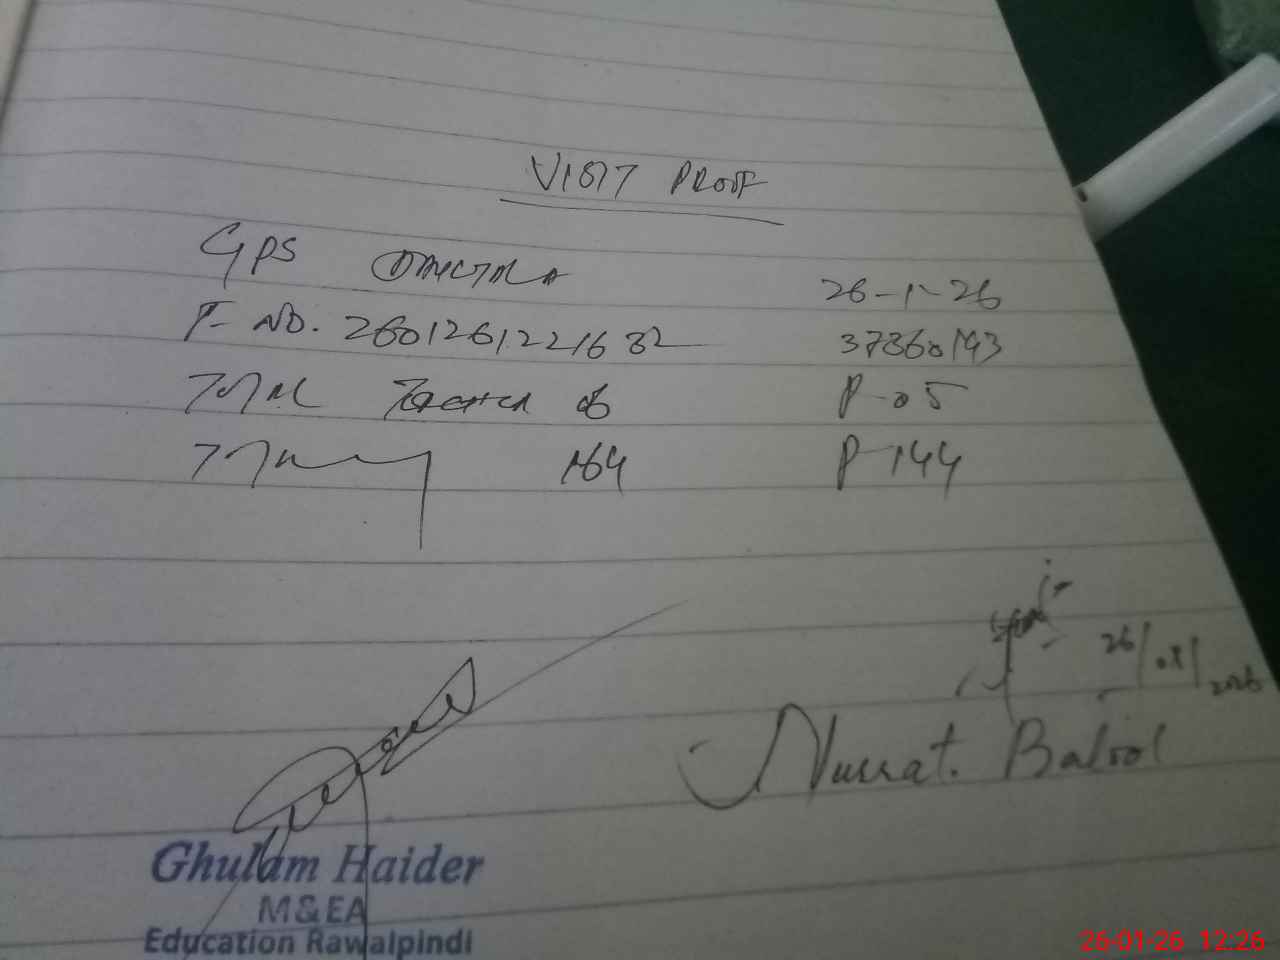 VISIT PROOF
GPS
26-1-26
F-NO. 2601261221632
37360193
Total Teacher 06 P-05
164 P-144
26/01/2026
Nusrat Batool
Ghulam Haider
M&EA
Education Rawalpindi
26-01-26 12:26